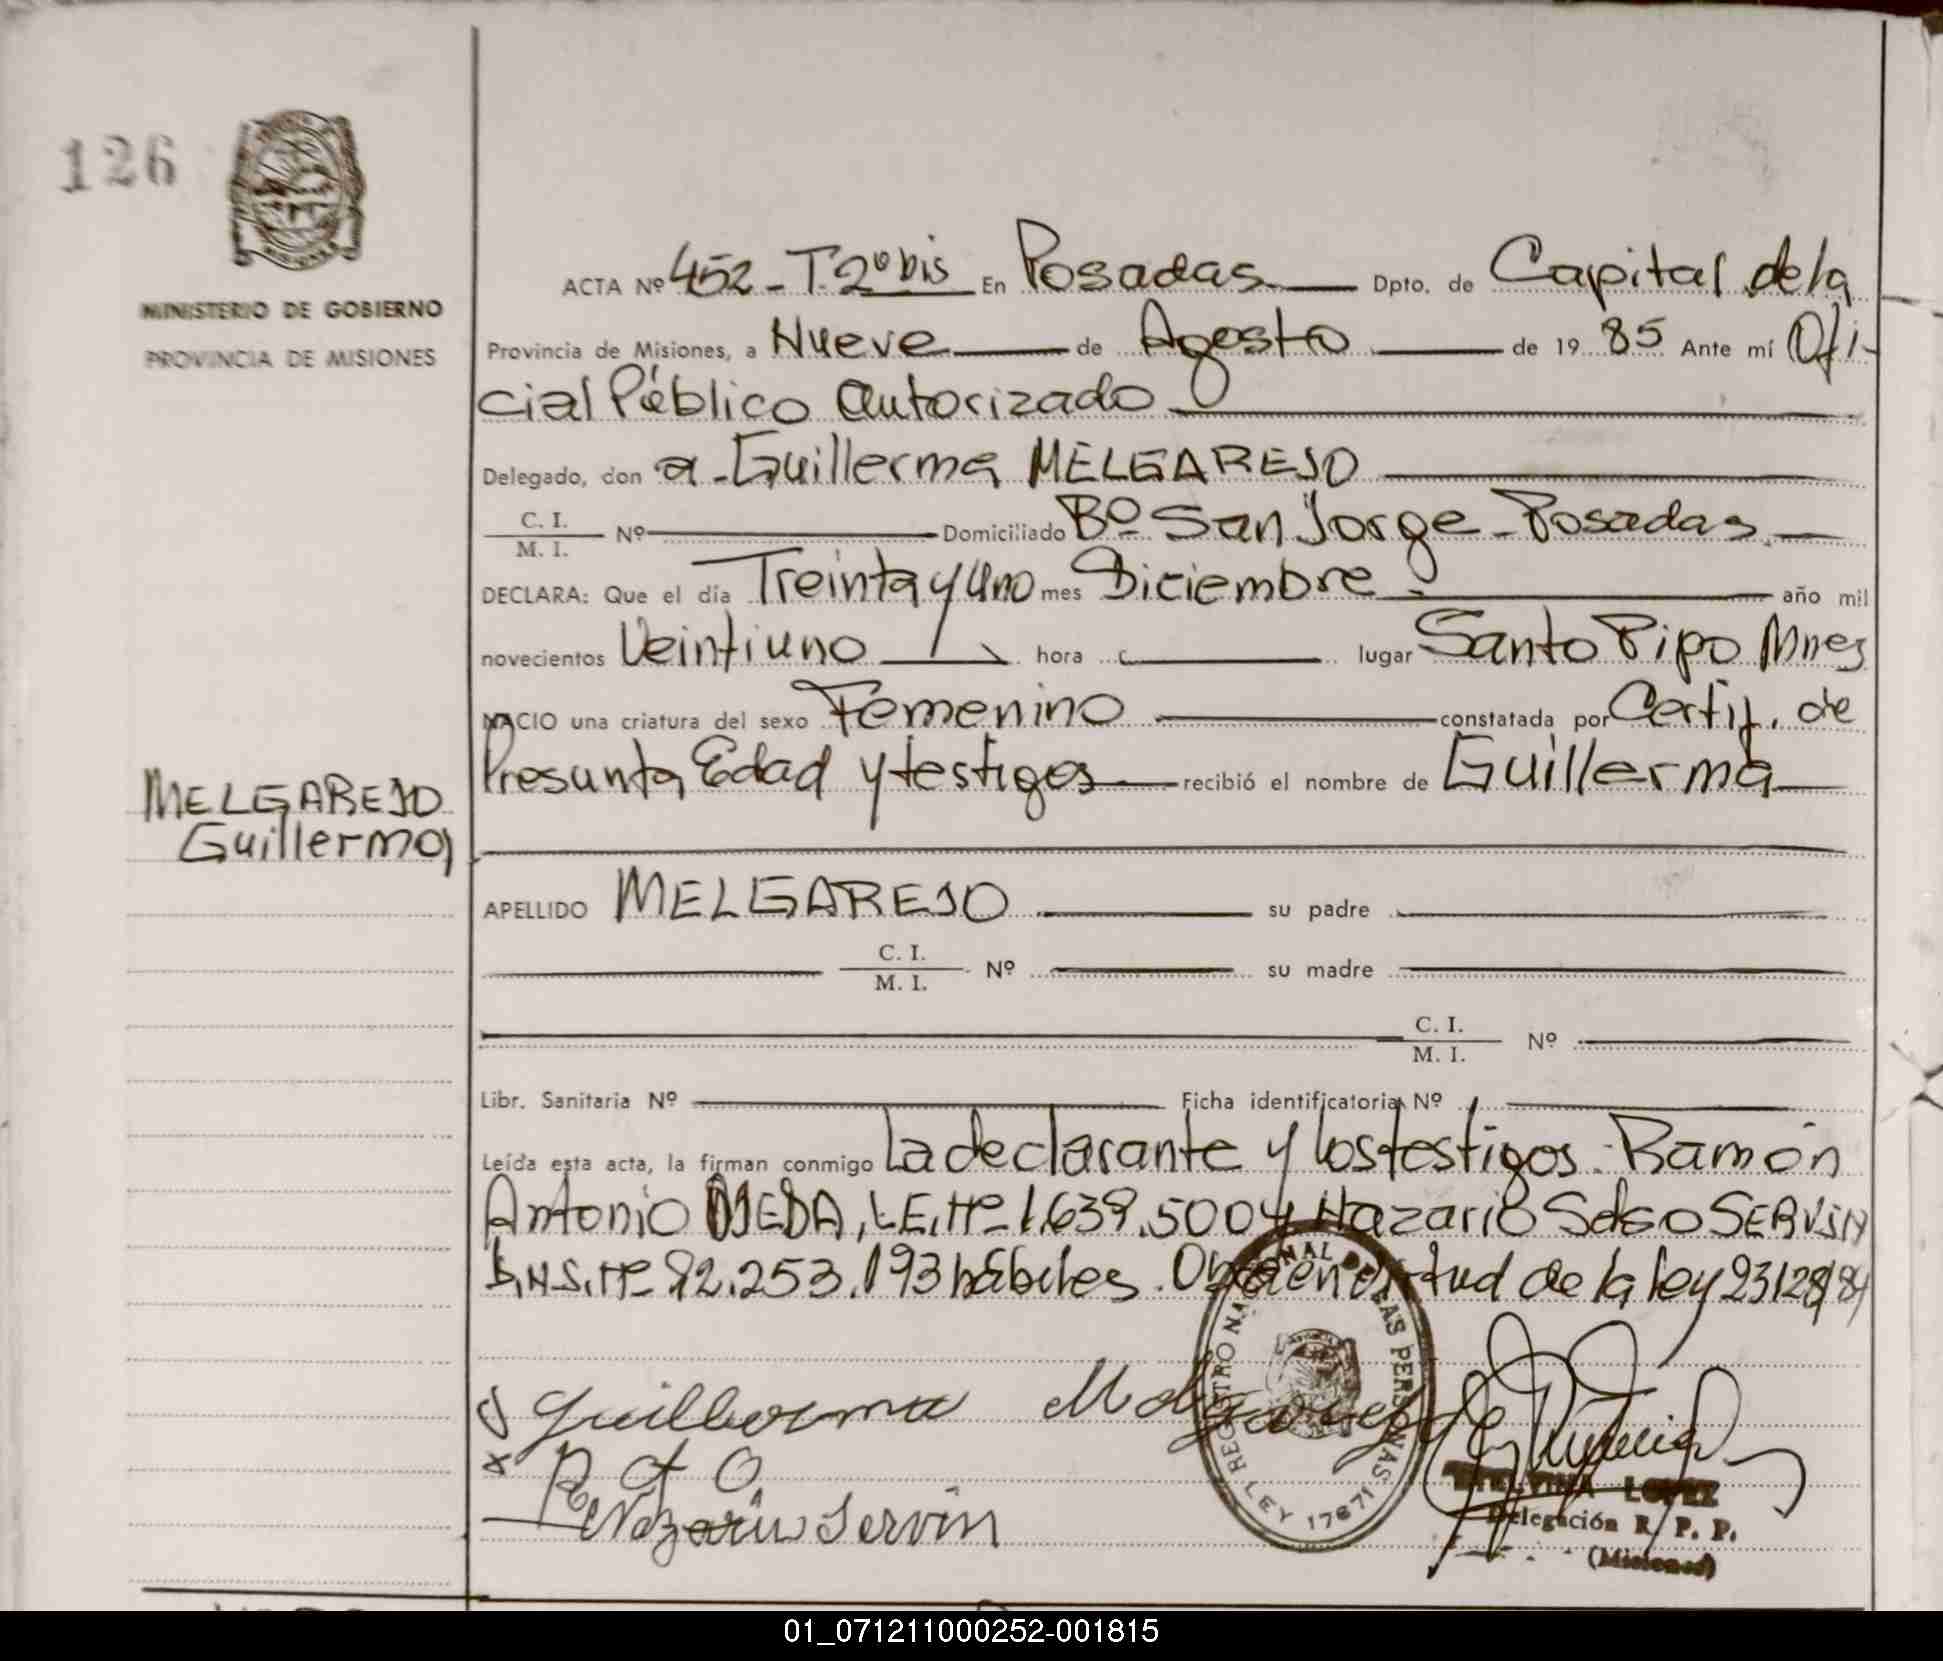 126
MINISTERIO DE GOBIERNO
PROVINCIA DE MISIONES
ACTA Nº 452 - T. 2º bis En Posadas Dpto. de Capital de la
Provincia de Misiones, a Nueve de Agosto de 19 85 Ante mí Ofi-
cial Público Autorizado
Delegado, don a - Guillerma MELGAREJO
C. I.
M. I. Nº Domiciliado Bº San Jorge - Posadas
DECLARA: Que el día Treinta y Uno mes Diciembre año mil
novecientos Veintiuno hora lugar Santo Pipo Mnes
NACIO una criatura del sexo Femenino constatada por Certif. de
Presunta Edad y testigos recibió el nombre de Guillerma
MELGAREJO
Guillerma
APELLIDO MELGAREJO su padre
C. I.
M. I. Nº su madre
C. I.
M. I. Nº
Libr. Sanitaria Nº Ficha identificatoria Nº
Leída esta acta, la firman conmigo la declarante y los testigos: Ramón
Antonio OJEDA, L.E. Nº 1.639.500 y Nazario SERVIN
D.N.I. Nº 92.253.193 hábiles. en virtud de la ley 23128/84
Guillerma Melgarejo
R A O
Nazario Servin
REGISTRO NACIONAL DE LAS PERSONAS
LEY 17671
LOPEZ
Delegación R. P. P.
(Misiones)
01_071211000252-001815